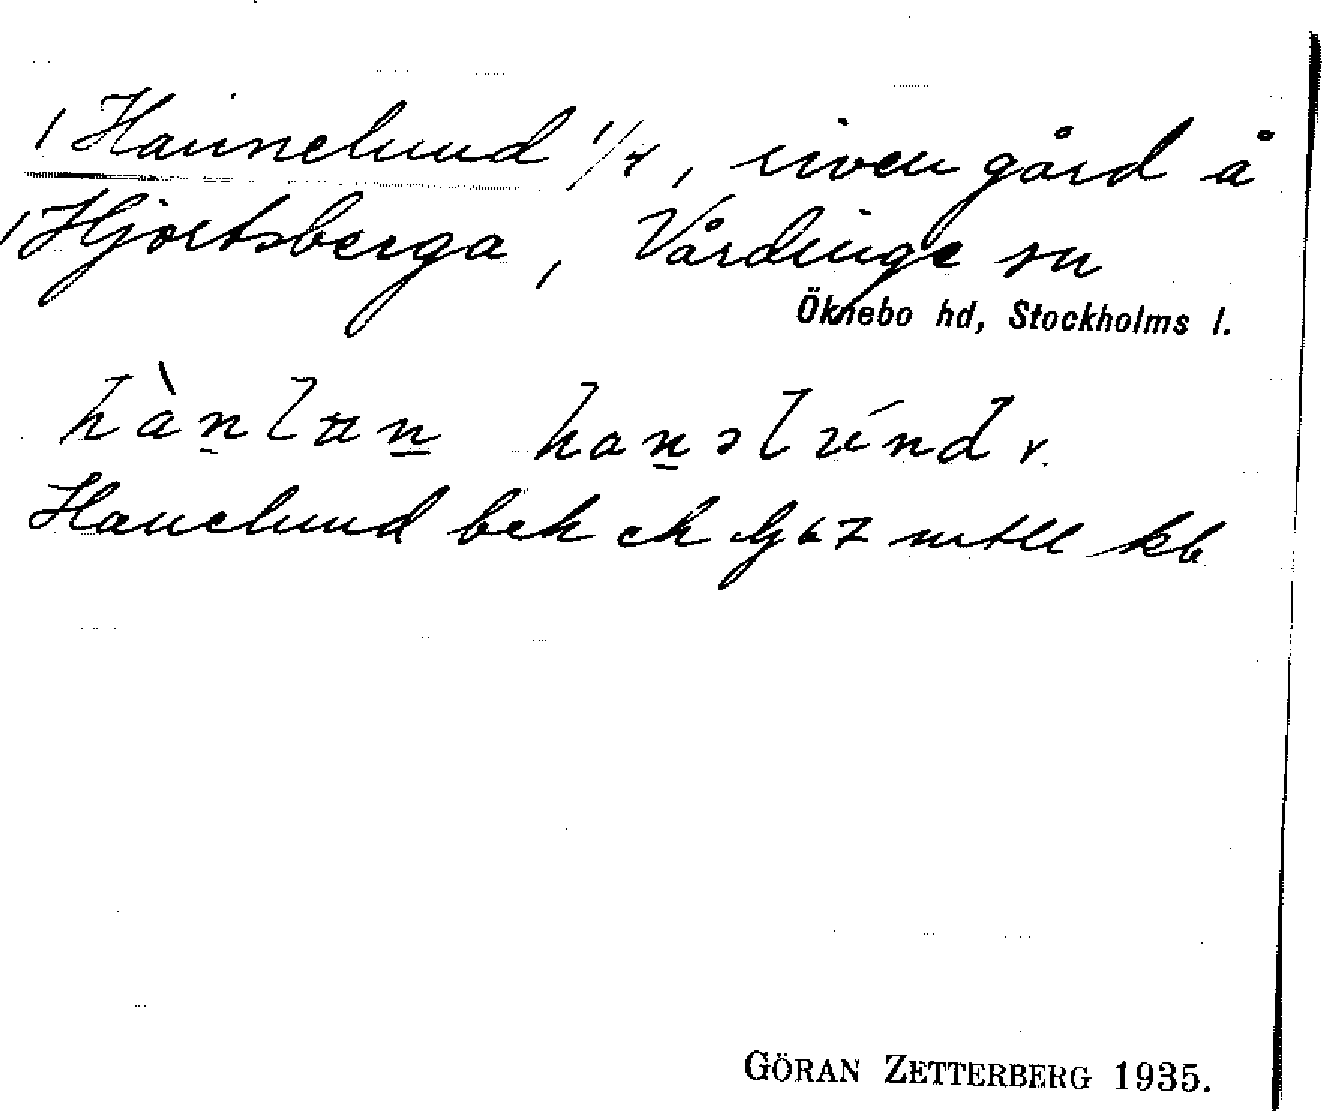 Hannelund 1/4, riven gård å
Hjortsberga, Vårdinge sn
Öknebo hd, Stockholms l.
hànlun hanəlúnd r.
Hanelund bek ek
GÖRAN ZETTERBERG 1935.